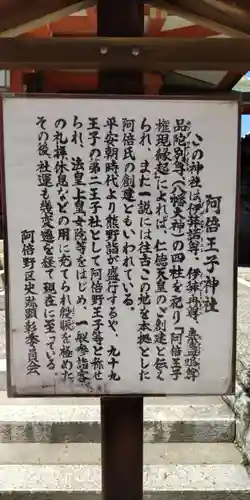 阿倍王子神社
この神社は伊弉諾尊、伊弉冉尊、素盞嗚尊
品陀別尊（八幡大神）の四柱を祀り『阿倍王子
権現縁起』によれば、仁徳天皇のご創建と伝え
られ、また一説には往古この地を本拠とした
阿倍氏の創建ともいわれている。
平安朝時代より熊野詣が盛行するや、九十九
王子の第二王子社として阿倍野王子等と称せ
られ、法皇上皇女院等をはじめ、一般参詣者
の礼拝休息などの用に充てられ殷賑を極めた
その後、社運も幾変遷を経て現在に至っている
阿倍野区史跡顕彰委員会